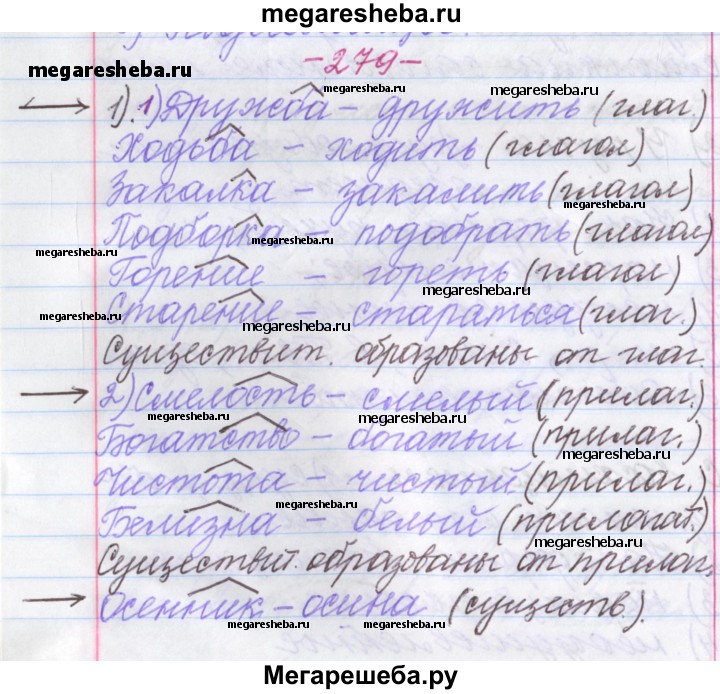 megaresheba.ru
-279-
1). 1) Дружба - дружить (глаг.)
Ходьба - ходить (глагол)
Закалка - закалить (глагол)
Подборка - подобрать (глагол)
Горение - гореть (глагол)
Старение - стараться (глаг.)
Существит. образованы от глаг.
2) Смелость - смелый (прилаг.)
Богатство - богатый (прилаг.)
Чистота - чистый (прилаг.)
Белизна - белый (прилагат.)
Существит. образованы от прилаг.
Осенник - осина (существ.).
Мегарешеба.ру